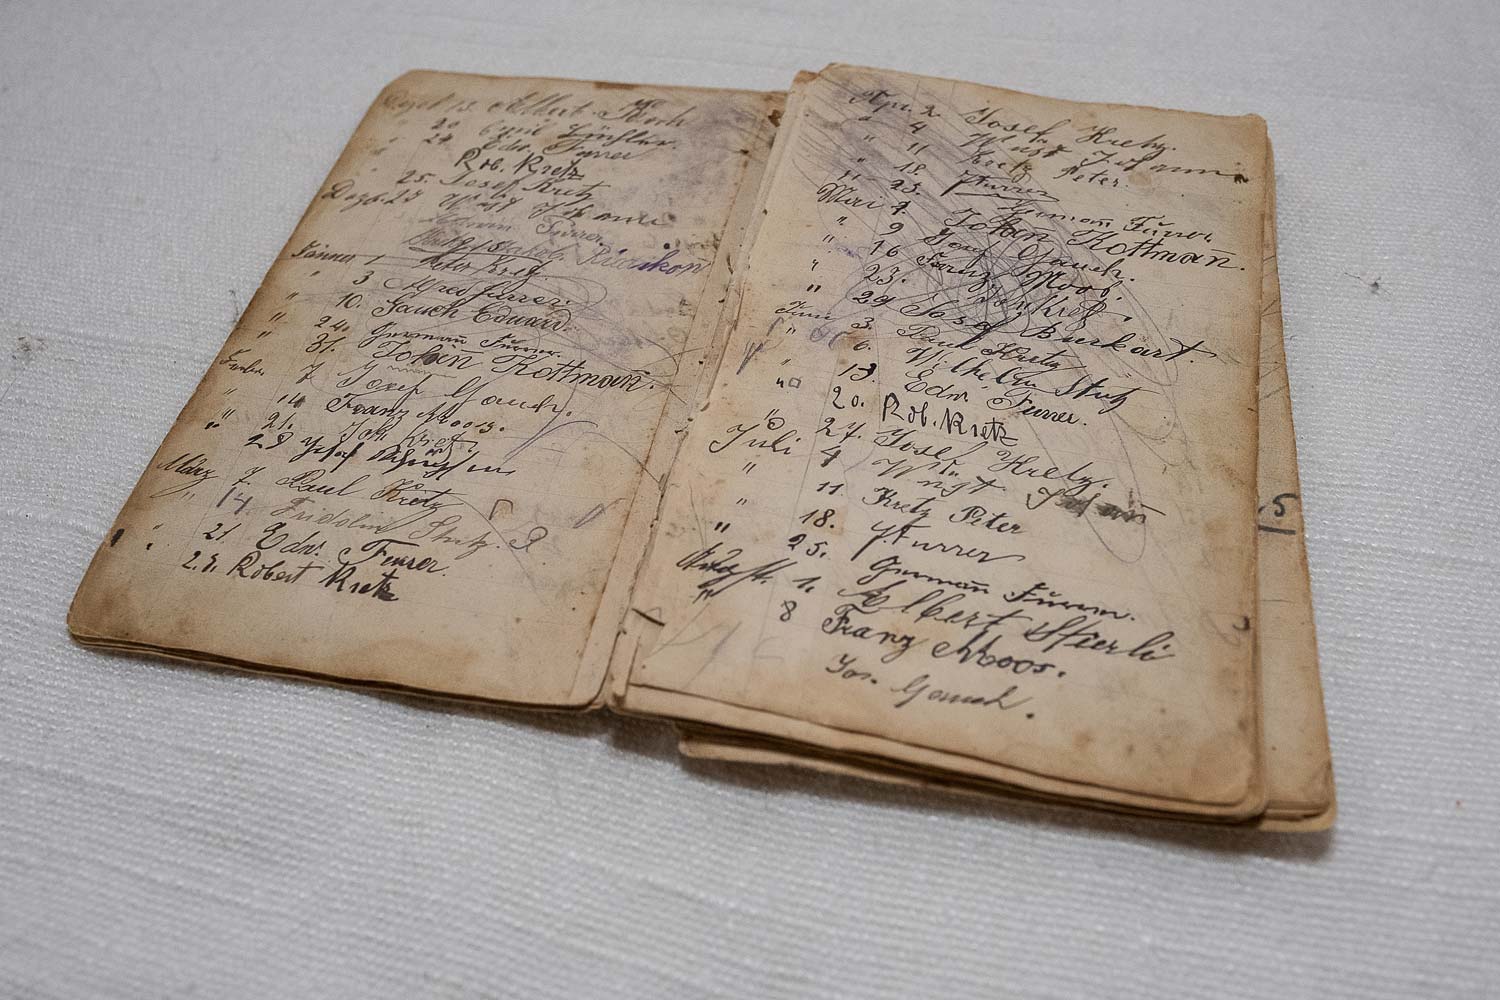 Dezb 13. Albert Koch
" 20 Emil
" 24. Edw. Furrer
Rob. Kretz
25. Josef Kretz
Dezb. 27 Wüst Johann
Furrer.
Rickikon
Jänner 1 Peter Kretz.
" 3 Alfred Furrer.
" 10. Gauch Eduard.
" 24. Germañ Furrer.
" 31. Johañ Rottmañ.
Feeber 7 Josef Gauch.
" 14 Franz Moos.
" 21. Joh. Kret.
" 28 Josef
März 7. Paul Kretz
" 14 Fridolin Stutz.
" 21 Edw. Furrer.
28. Robert Kretz
Apr. 2 Josef Kretz.
" 4 Wüst Johann
" 11 Kretz Peter.
" 18. Furrer
" 25. Germañ Furrer.
Mai 2. Johañ Rottmañ.
" 9 Josef Gauch.
" 16 Franz Moos.
" 23.
" 29 Josef Burkart.
Juni 3. Paul Kretz
" 6. Wilhelm Stutz
" 13 Edw. Furrer.
" 20. Rob. Kretz
" 27. Josef Kretz.
Juli 4 Wüst Johañ
" 11. Kretz Peter
" 18. Furrer
" 25. Germañ Furrer.
Augst. 1. Albert Stierli
" 8 Franz Moos.
Jos. Gauch.
5